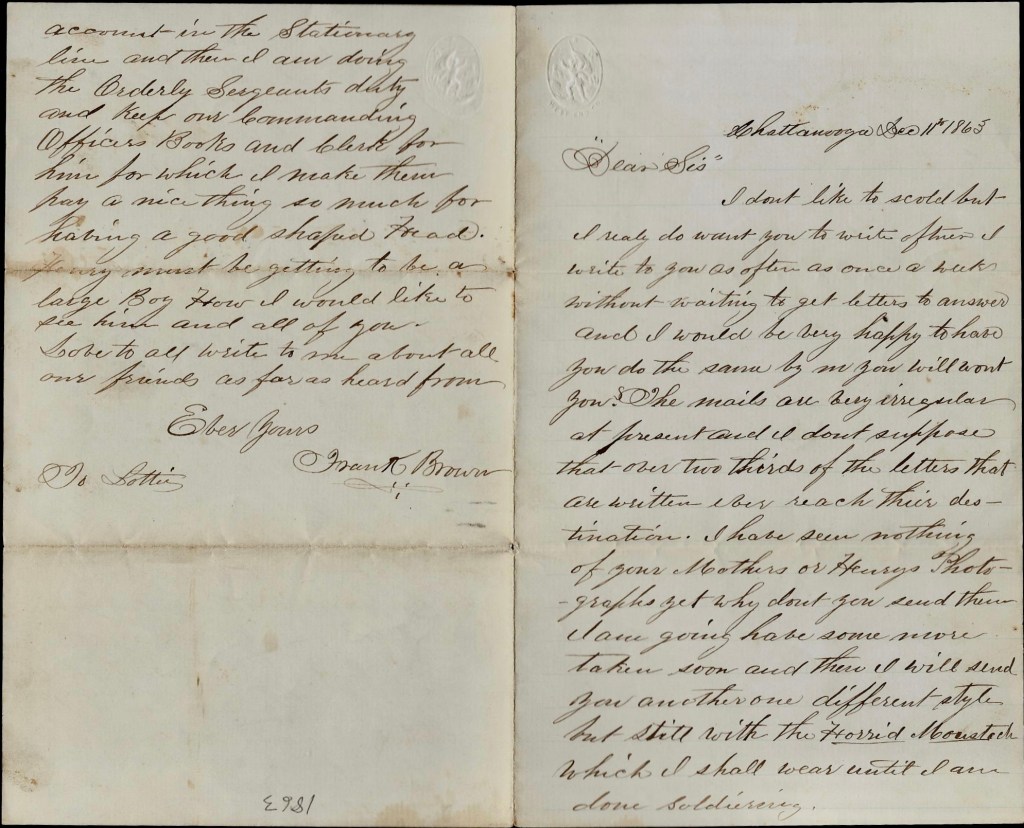 Chattanooga Dec 11th 1863
"Dear Sis"
I dont like to scold but
I realy do want you to write oftner I
write to you as often as once a week
without waiting to get letters to answer
and I would be very happy to have
you do the same by m you will wont
you? The mails are very irregular
at present and I dont suppose
that over two thirds of the letters that
are written ever reach their des-
tination. I have seen nothing
of your Mothers or Henrys Photo-
-graphs yet why dont you send them
I am going have some more
taken soon and then I will send
you another one different style
but still with the Horrid Moustach
which I shall wear until I am
done soldiering.
account in the Stationary
line and then I am doing
the Orderly Sergeants duty
and keep our Commanding
Officers Books and Clerk for
him for which I make them
pay a nice thing so much for
having a good shaped Head.
Henry must be getting to be a
large Boy How I would like to
see him and all of you.
Love to all write to me about all
our friends as far as heard from
Ever Yours
Frank Brown
To Lottie
1863